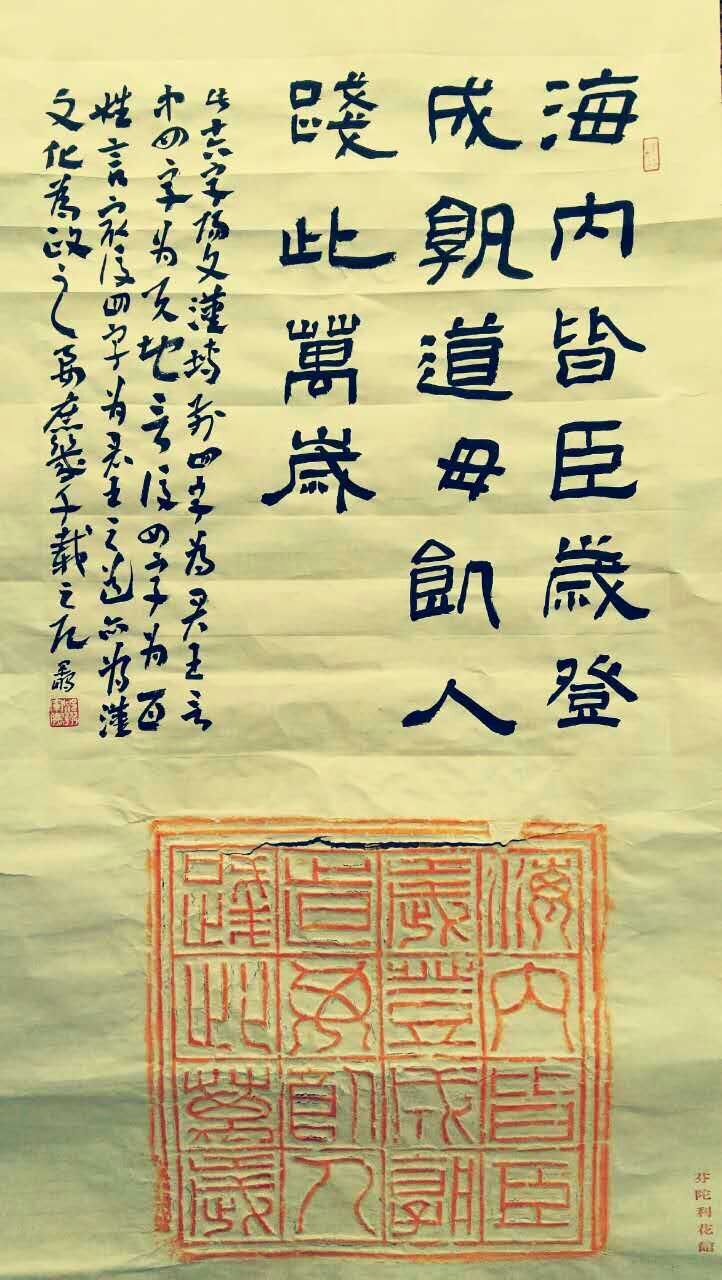 海内皆臣歲登
成孰道毋飢人
踐此萬歲
此十六字陽文漢塼前四字為君王言
中四字为天地言後四字为百
姓言最後四字为君王之道亦為漢
文化為政之要庶幾千載之
海内皆臣
歲登成孰
道毋飢人
踐此萬歲
芬陀利花館